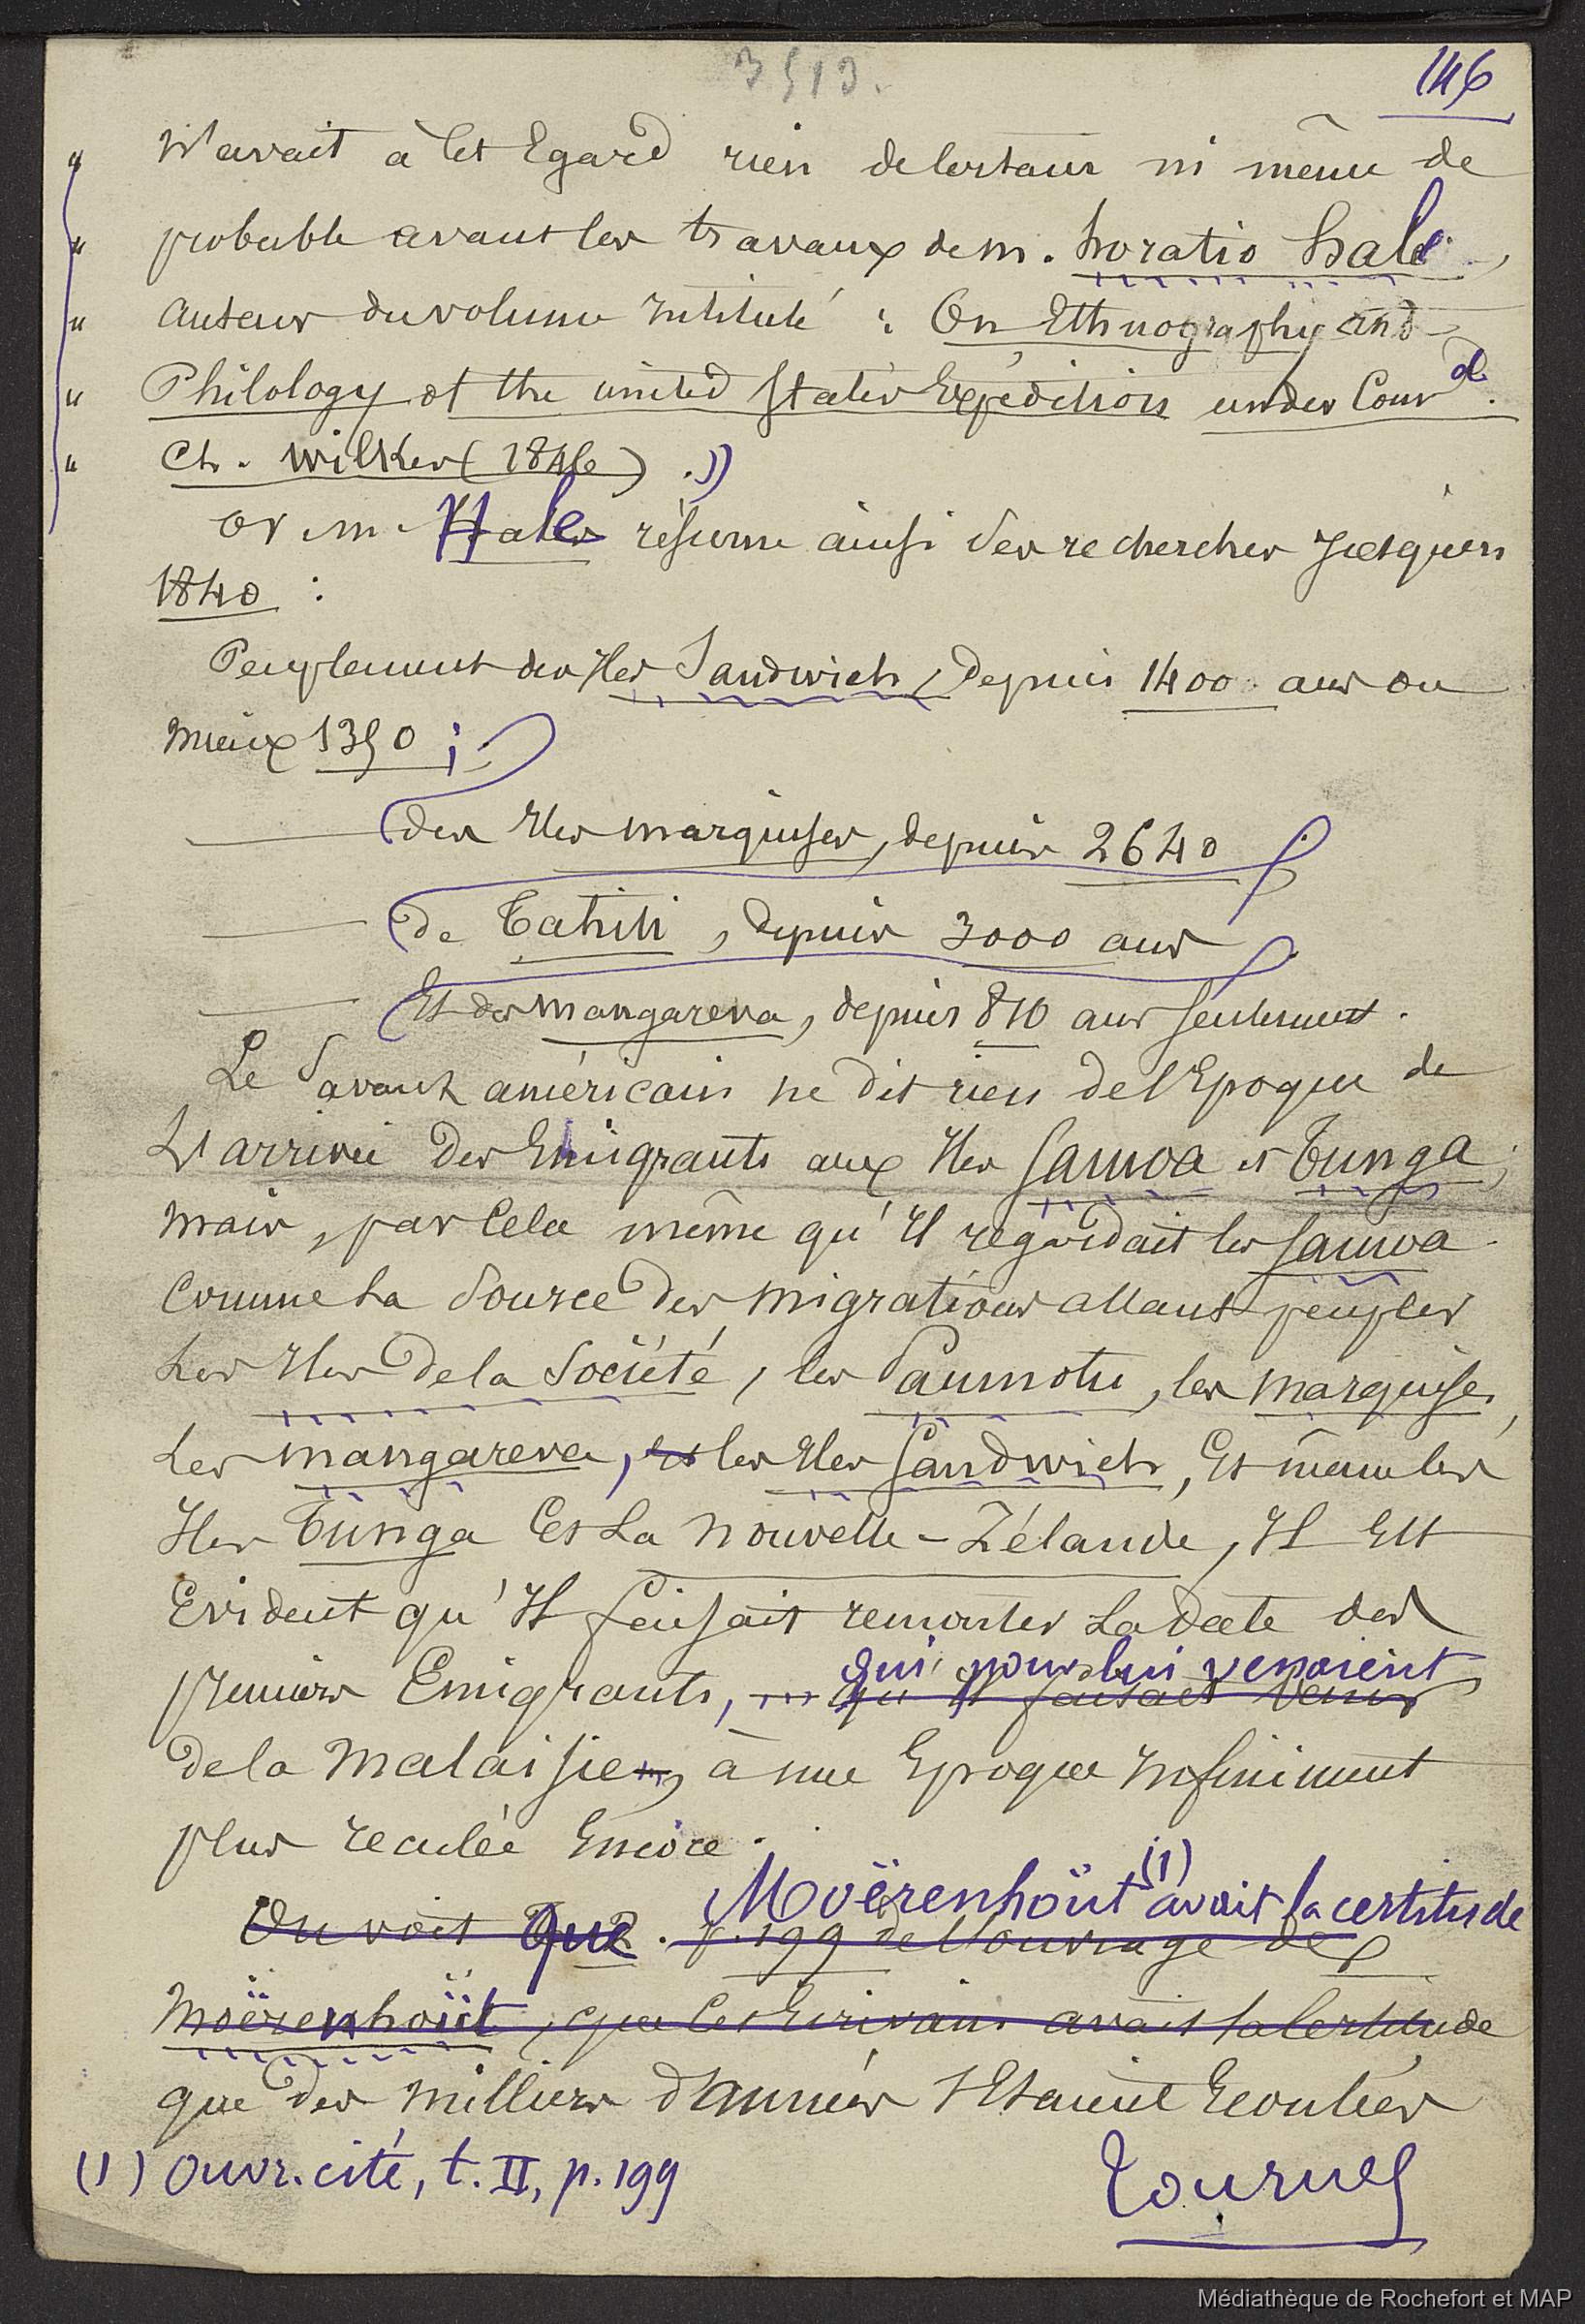 3513.
146
" n'avait à cet Egard rien de certain ni même de
" probable avant les travaux de m. horatio hale,
" auteur du volume Intitulé : On Ethnography and
" Philology of the united States Expedition under Com d.
" Ch. Wilkes (1846) . »
Or m. Hale résume ainsi ses recherches Jusqu'en
1840 :
Peuplement des Iles Sandwich, Depuis 1400 ans ou
mieux 1350 ;
— des Iles marquises, depuis 2640
— de Tahiti, depuis 3000 ans
— Et des mangareva, depuis 810 ans seulement.
Le Savant américain ne dit rien de l'Epoque de
L'arrivée des Emigrants aux Iles Samoa et Tunga ;
mais, par cela même qu'Il regardait les Samoa
comme la source des migrations allant peupler
Les Iles de la Société, les Paumotu, les marquises,
Les mangareva, et les Iles Sandwich, Et même les
Iles Tunga Et La nouvelle-Zélande, Il Est
Evident qu'Il faisait remonter La date des
premiers Emigrants, qui pour lui venaient
qu'Il faisait venir
de la Malaisie, à une Epoque Infiniment
plus reculée Encore.
Moërenhoüt (1) avait la certitude
On voit Que . p. 199 de l'ouvrage de
Moërenhoüt, que cet Ecrivain avait la certitude
que des milliers d'années s'Etaient Ecoulées
(1) Ouvr. cité, t. II, p. 199
Tournez
Médiathèque de Rochefort et MAP